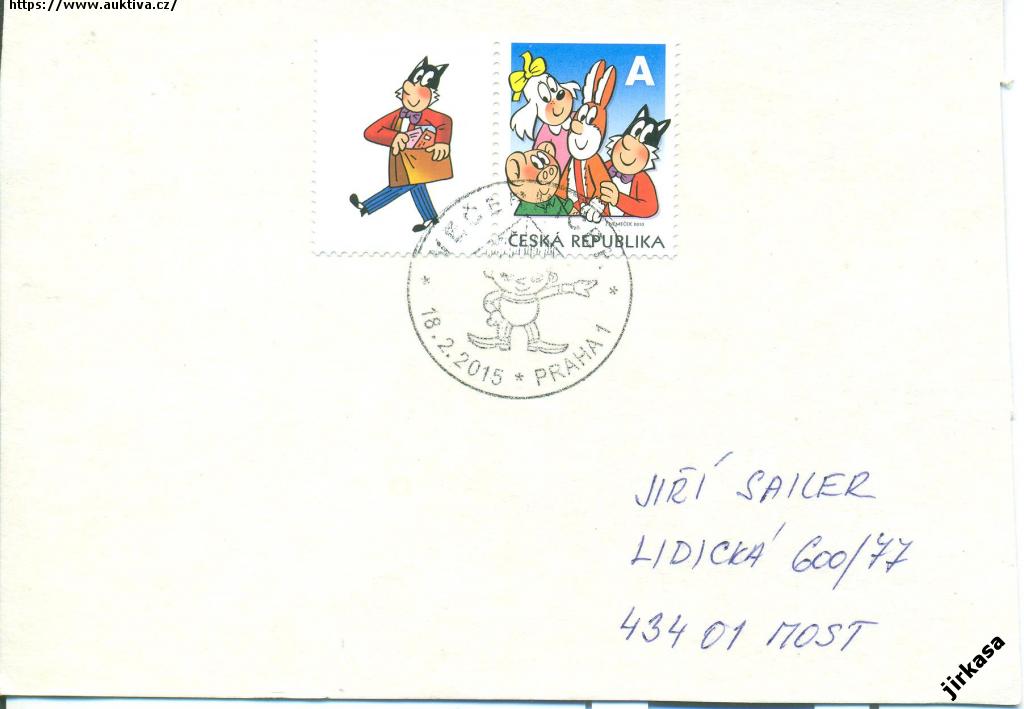 https://www.auktiva.cz/
A
ČESKÁ REPUBLIKA
18.2.2015 * PRAHA 1
JIŘÍ SAILER
LIDICKÁ 600/77
434 01 MOST
jirkasa